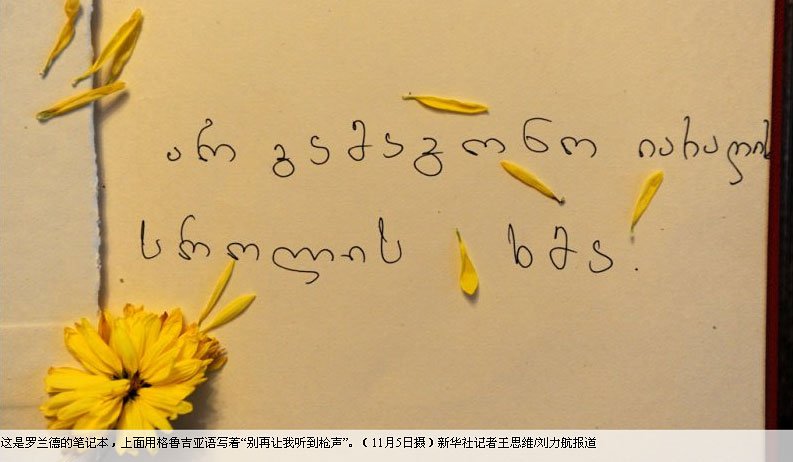 არ გამაგონო იარაღის
სროლის ხმა.
这是罗兰德的笔记本，上面用格鲁吉亚语写着“别再让我听到枪声”。（ 11月5日摄）新华社记者王思维/刘力航报道